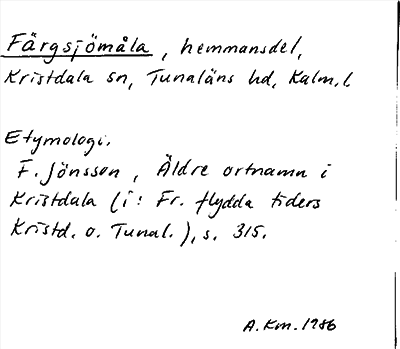 Färgsjömåla, hemmansdel,
Kristdala sn, Tunaläns hd, Kalm. l
Etymologi.
F. Jönsson, Äldre ortnamn i
Kristdala (i: Fr. flydda tiders
Kristd. o. Tunal.), s. 315.
A. Km. 1986